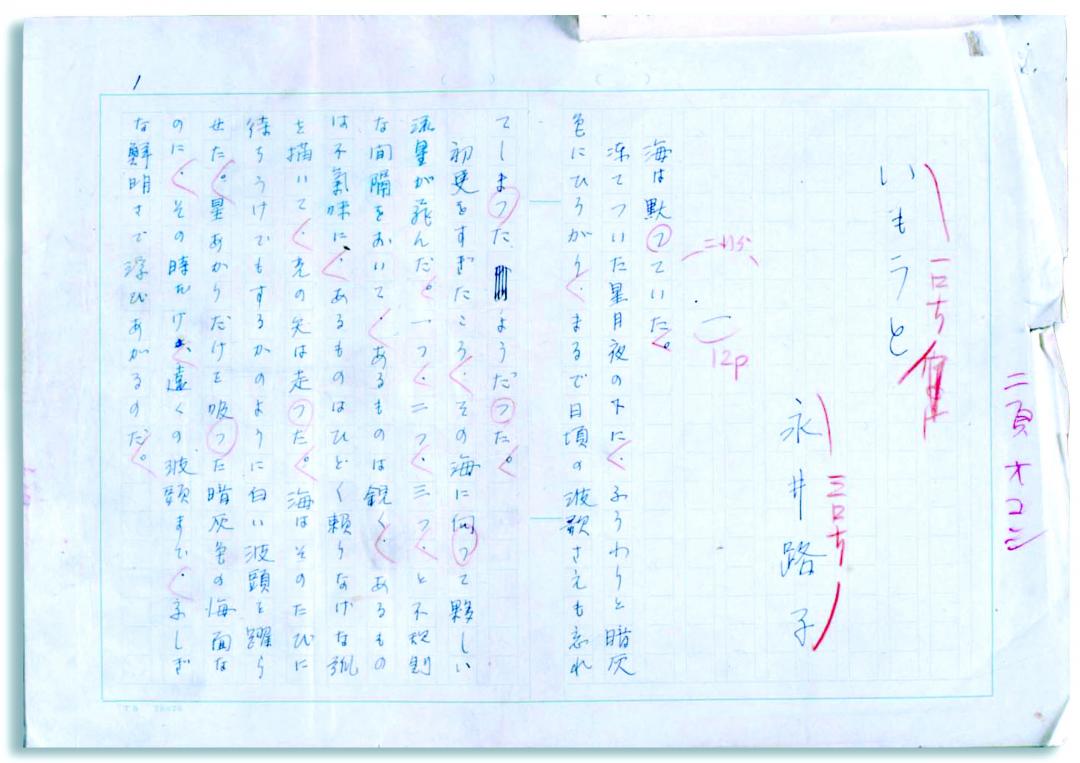 二頁オコシ
いもうと
永井路子
一
12p
海は黙つていた。
凍てついた星月夜の下に、ふうわりと暗灰
色にひろがり、まるで日頃の波歌さえも忘れ
てしまつたようだつた。
初更をすぎたころ、その海に向つて夥しい
流星が飛んだ。一つ、二つ、三つ、と不規則
な間隔をおいて、あるものは鋭く、あるもの
は不氣味に、あるものはひどく頼りなげな弧
を描いて、光の矢は走つた。海はそのたびに
待ちうけでもするかのように白い波頭を躍ら
せた。星あかりだけを吸つた暗灰色の海面な
のに、その時だけ、遠くの波頭まで、ふしぎ
な鮮明さで浮びあがるのだ。
1